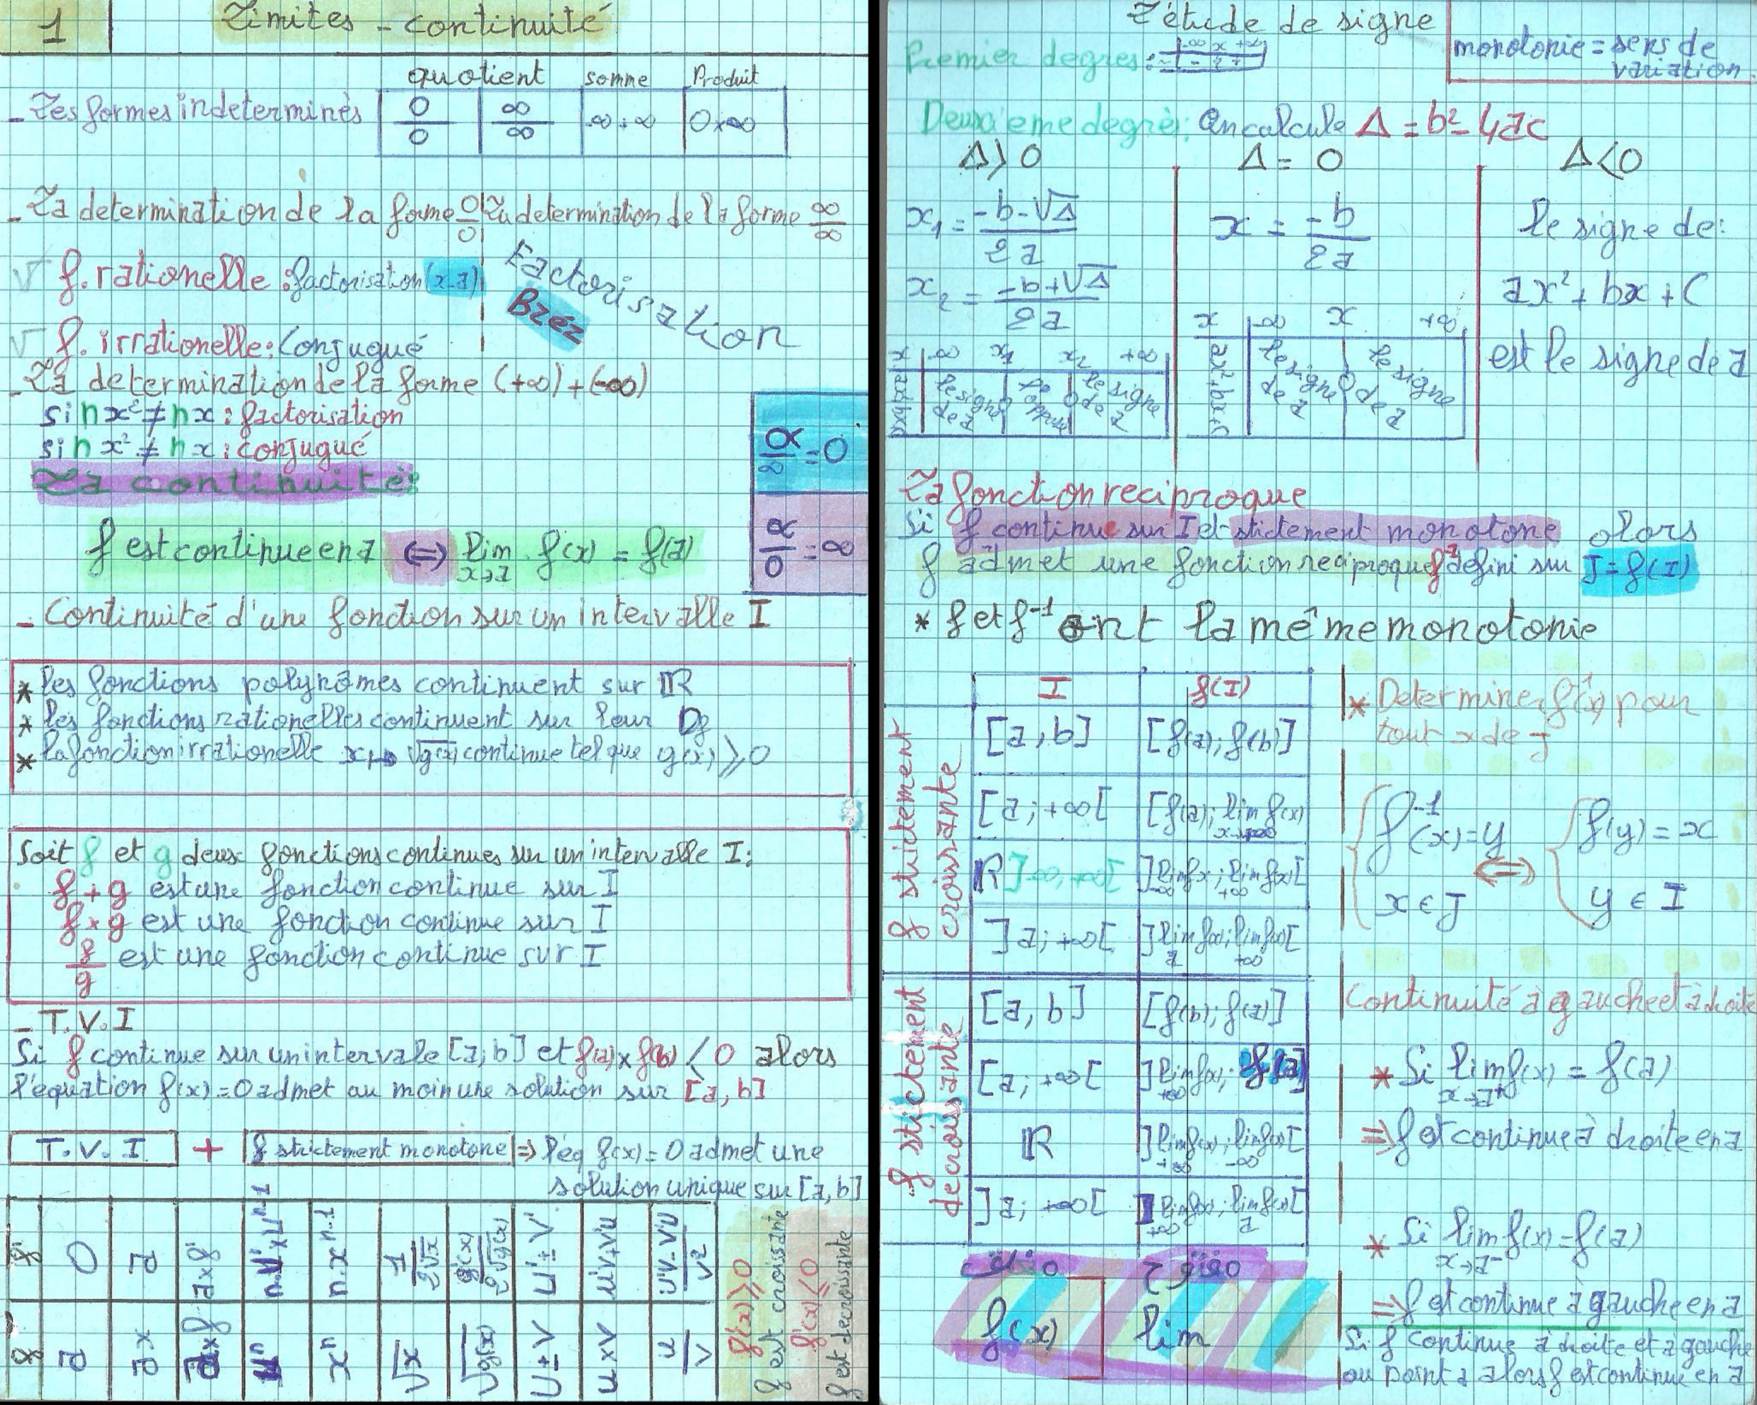 1
Limites - continuité
quotient somme Produit
- Les formes indeterminés 0/0 ∞/∞ -∞+∞ 0×∞
- La determination de la forme 0/0
La determination de la forme ∞/∞
√ f. rationelle : factorisation (x-a)
Factorisation
√ f. irrationelle : Conjugué
- La determination de la forme (+∞)+(-∞)
si nx² ≠ nx : factorisation
si nx² ≠ nx : conjugué
α/∞ = 0
α/0 = ∞
La continuité:
f est continue en a ⇔ lim x→a f(x) = f(a)
- Continuité d'une fonction sur un intervalle I
* les fonctions polynômes continuent sur ℝ
* les fonctions rationelles continuent sur leur Df
* la fonction irrationelle x↦√g(x) continue tel que g(x) ≥ 0
Soit f et g deux fonctions continues sur un intervalle I:
f+g est une fonction continue sur I
f×g est une fonction continue sur I
f/g est une fonction continue sur I
- T.V.I
Si f continue sur un intervale [a;b] et f(a)×f(b) < 0 alors
l'équation f(x)=0 admet au moin une solution sur [a,b]
T.V.I + f strictement monotone ⇒ l'éq f(x)=0 admet une
solution unique sur [a,b]
f' 0 a a×f' n.U'×U^n-1 n.x^n-1 1/2√x g'(x)/2√g(x) U'±V' U'V+V'U U'V-V'U/V²
f a ax a×f U^n x^n √x √g(x) U±V U×V U/V
f'(x) ≥ 0
f est croissante
f'(x) ≤ 0
f est decroissante
L'étude de signe
monotonie = sens de
variation
Premier degres :
Deuxieme degrés: On calcule Δ = b²-4ac
Δ>0 Δ = 0 Δ<0
x₁ = -b-√Δ/2a
x₂ = -b+√Δ/2a
x = -b/2a
le signe de:
ax²+bx+C
est le signe de a
x -∞ x₁ x₂ +∞
ax²+bx+c le signe de a 0 0 le signe de a
x -∞ x +∞
ax²+bx+c le signe de a 0 le signe de a
La fonction reciproque
Si f continue sur I et stictement monotone alors
f admet une fonction reciproque f⁻¹ defini sur J=f(I)
* f et f⁻¹ ont la même monotonie
I f(I)
f strictement croissante
[a,b] [f(a); f(b)]
[a;+∞[ [f(a); lim f(x) x→+∞
ℝ ]-∞,+∞[ ]lim f(x) -∞; lim f(x) +∞[
]a;+∞[ ]lim f(x) a; lim f(x) +∞[
f stictement decroissante
[a,b] [f(b); f(a)]
[a,+∞[ ]lim f(x) +∞; f(a)]
ℝ ]lim f(x) +∞; lim f(x) -∞[
]a;+∞[ ]lim f(x) +∞; lim f(x) a[
f(x) lim
* Determiner f⁻¹(x) pour
tout x de J
f⁻¹(x)=y ⇔ f(y)=x
x ∈ J y ∈ I
Continuité a gauche et à droite
* Si lim x→a⁺ f(x) = f(a)
⇒ f est continue à droite en a
* Si lim x→a⁻ f(x) = f(a)
⇒ f est continue à gauche en a
Si f continue à droite et a gauche
au point a alors f est continue en a